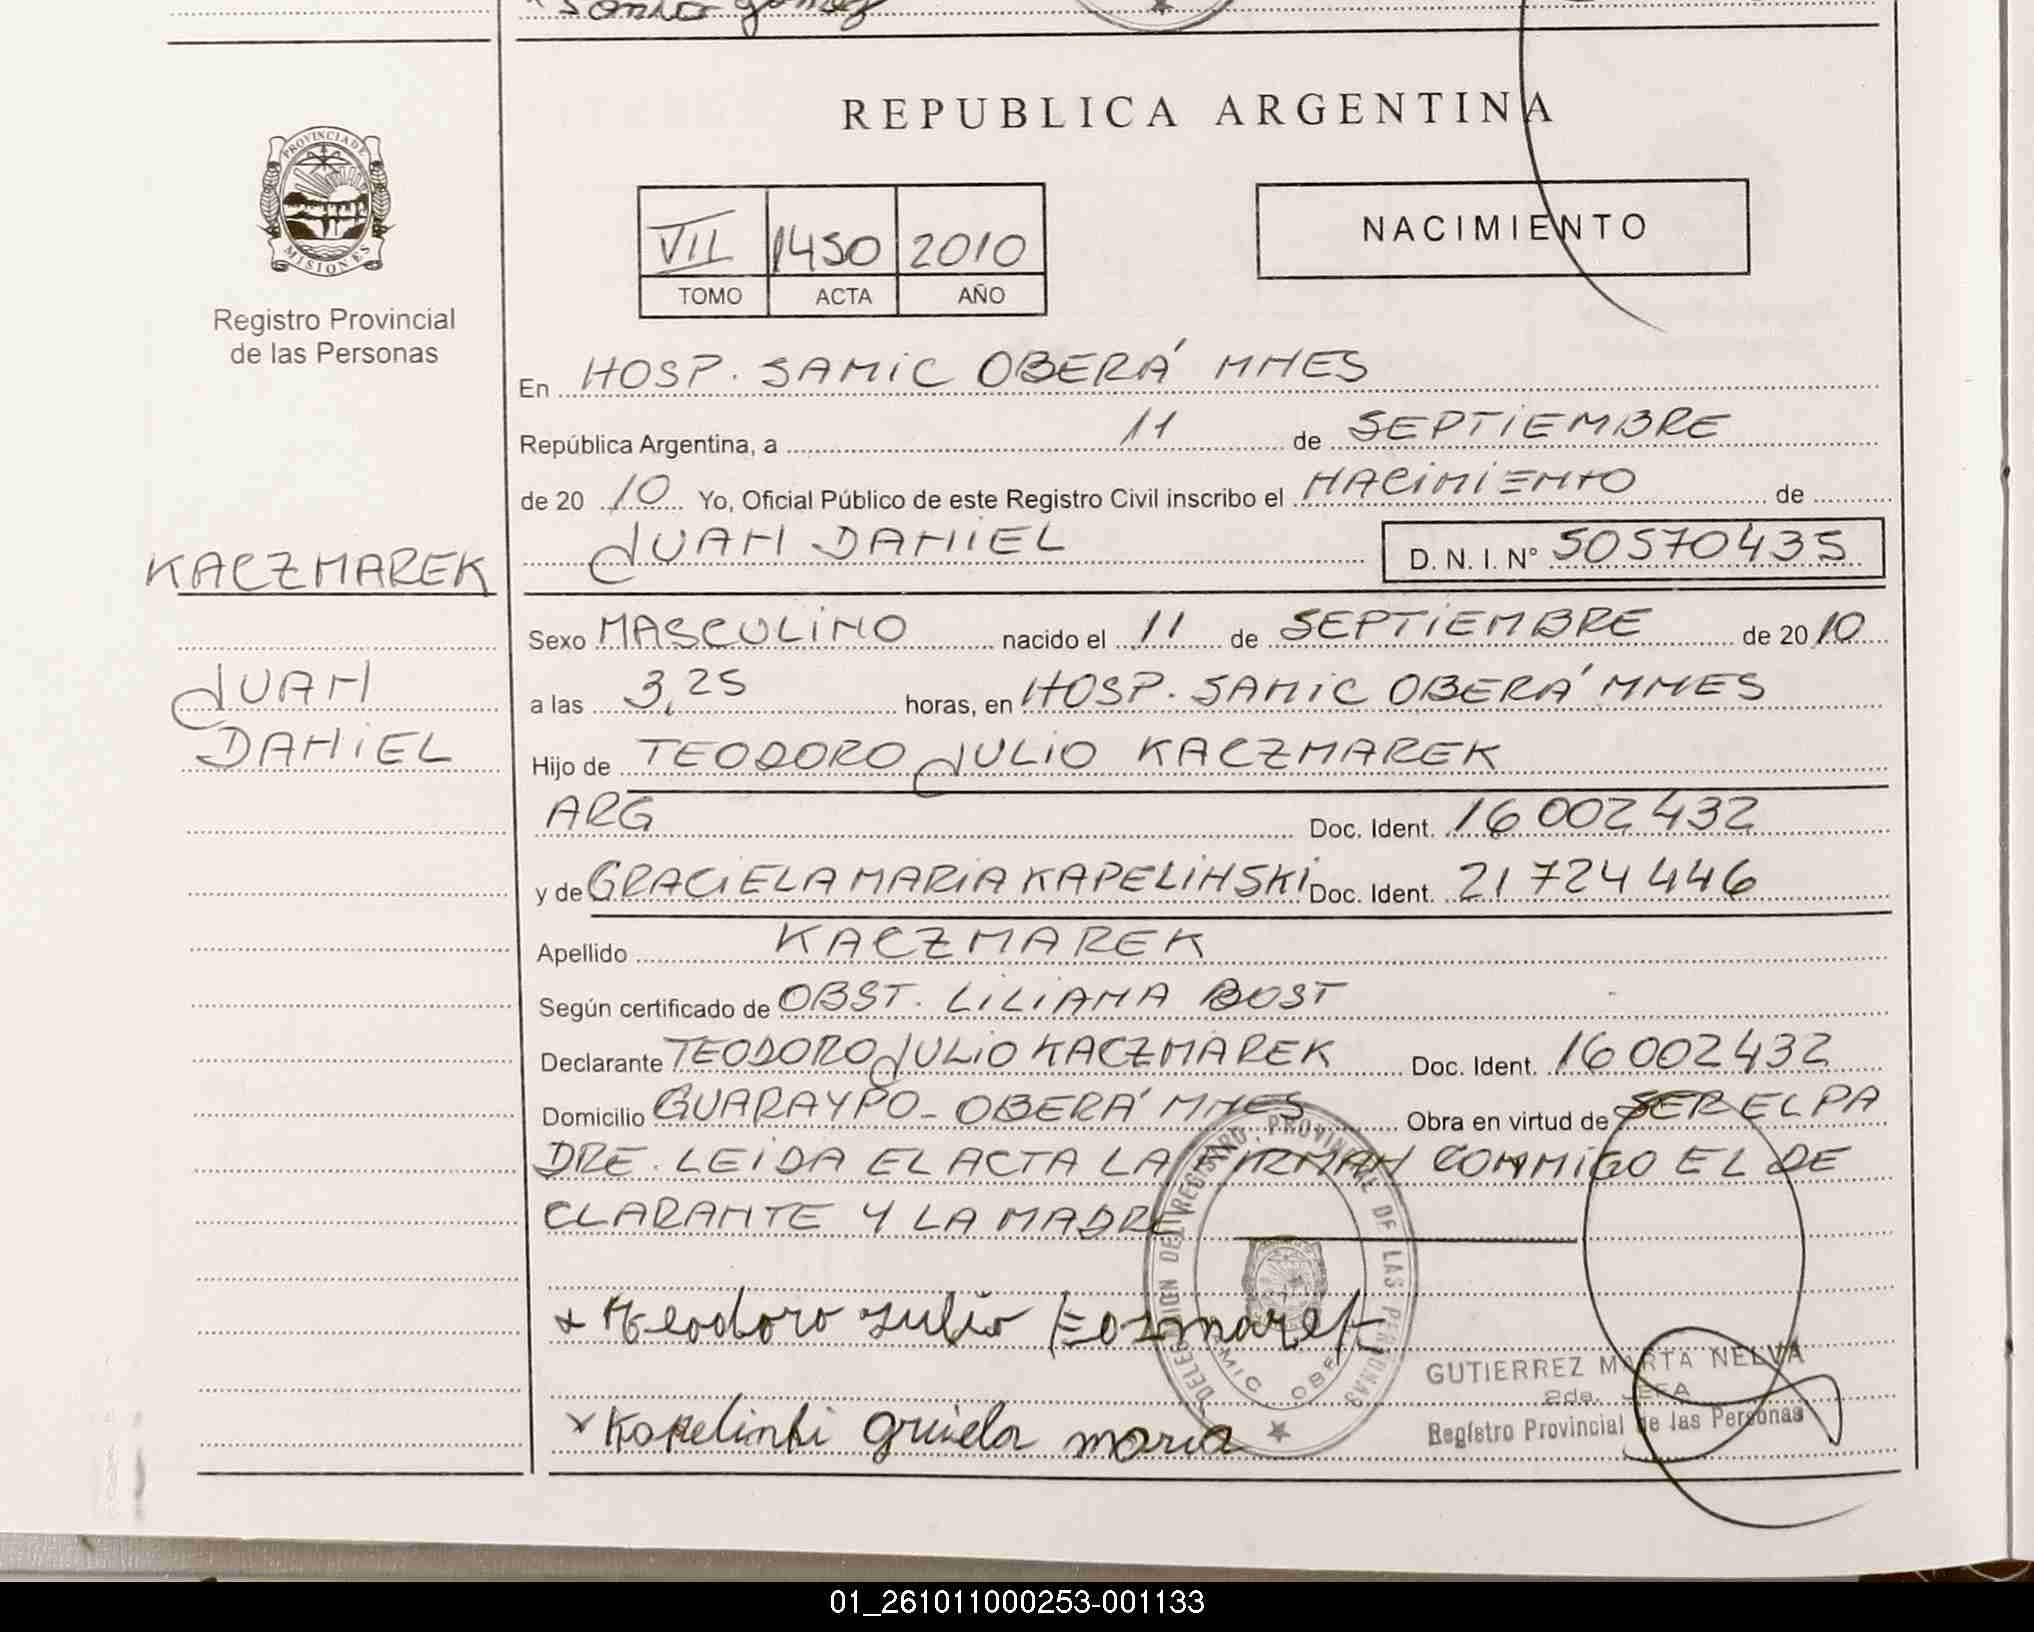 Sonia Gomez
PROVINCIA DE
MISIONES
Registro Provincial
de las Personas
KACZMAREK
JUAN
DANIEL
REPUBLICA ARGENTINA
VII 1450 2010
TOMO ACTA AÑO
NACIMIENTO
En HOSP. SAMIC OBERÁ MNES
República Argentina, a 11 de SEPTIEMBRE
de 20 10 Yo, Oficial Público de este Registro Civil inscribo el NACIMIENTO de
JUAN DANIEL D. N. I. N° 50570435
Sexo MASCULINO nacido el 11 de SEPTIEMBRE de 20 10
a las 3,25 horas, en HOSP. SAMIC OBERÁ MNES
Hijo de TEODORO JULIO KACZMAREK
ARG Doc. Ident. 16 002 432
y de GRACIELA MARIA KAPELINSKI Doc. Ident. 21 724 446
Apellido KACZMAREK
Según certificado de OBST. LILIANA BOST
Declarante TEODORO JULIO KACZMAREK Doc. Ident. 16 002 432
Domicilio GUARAYPO - OBERÁ MNES Obra en virtud de SER EL PA
DRE. LEIDA EL ACTA LA FIRMAN CONMIGO EL DE
CLARANTE Y LA MADRE
DELEGACION DEL REGISTRO PROVINC. DE LAS PERSONAS
x Teodoro Julio Kozmarek
x Kapelinki griela maria
GUTIERREZ MARTA NELVA
2da. JEFA
Registro Provincial de las Personas
01_261011000253-001133